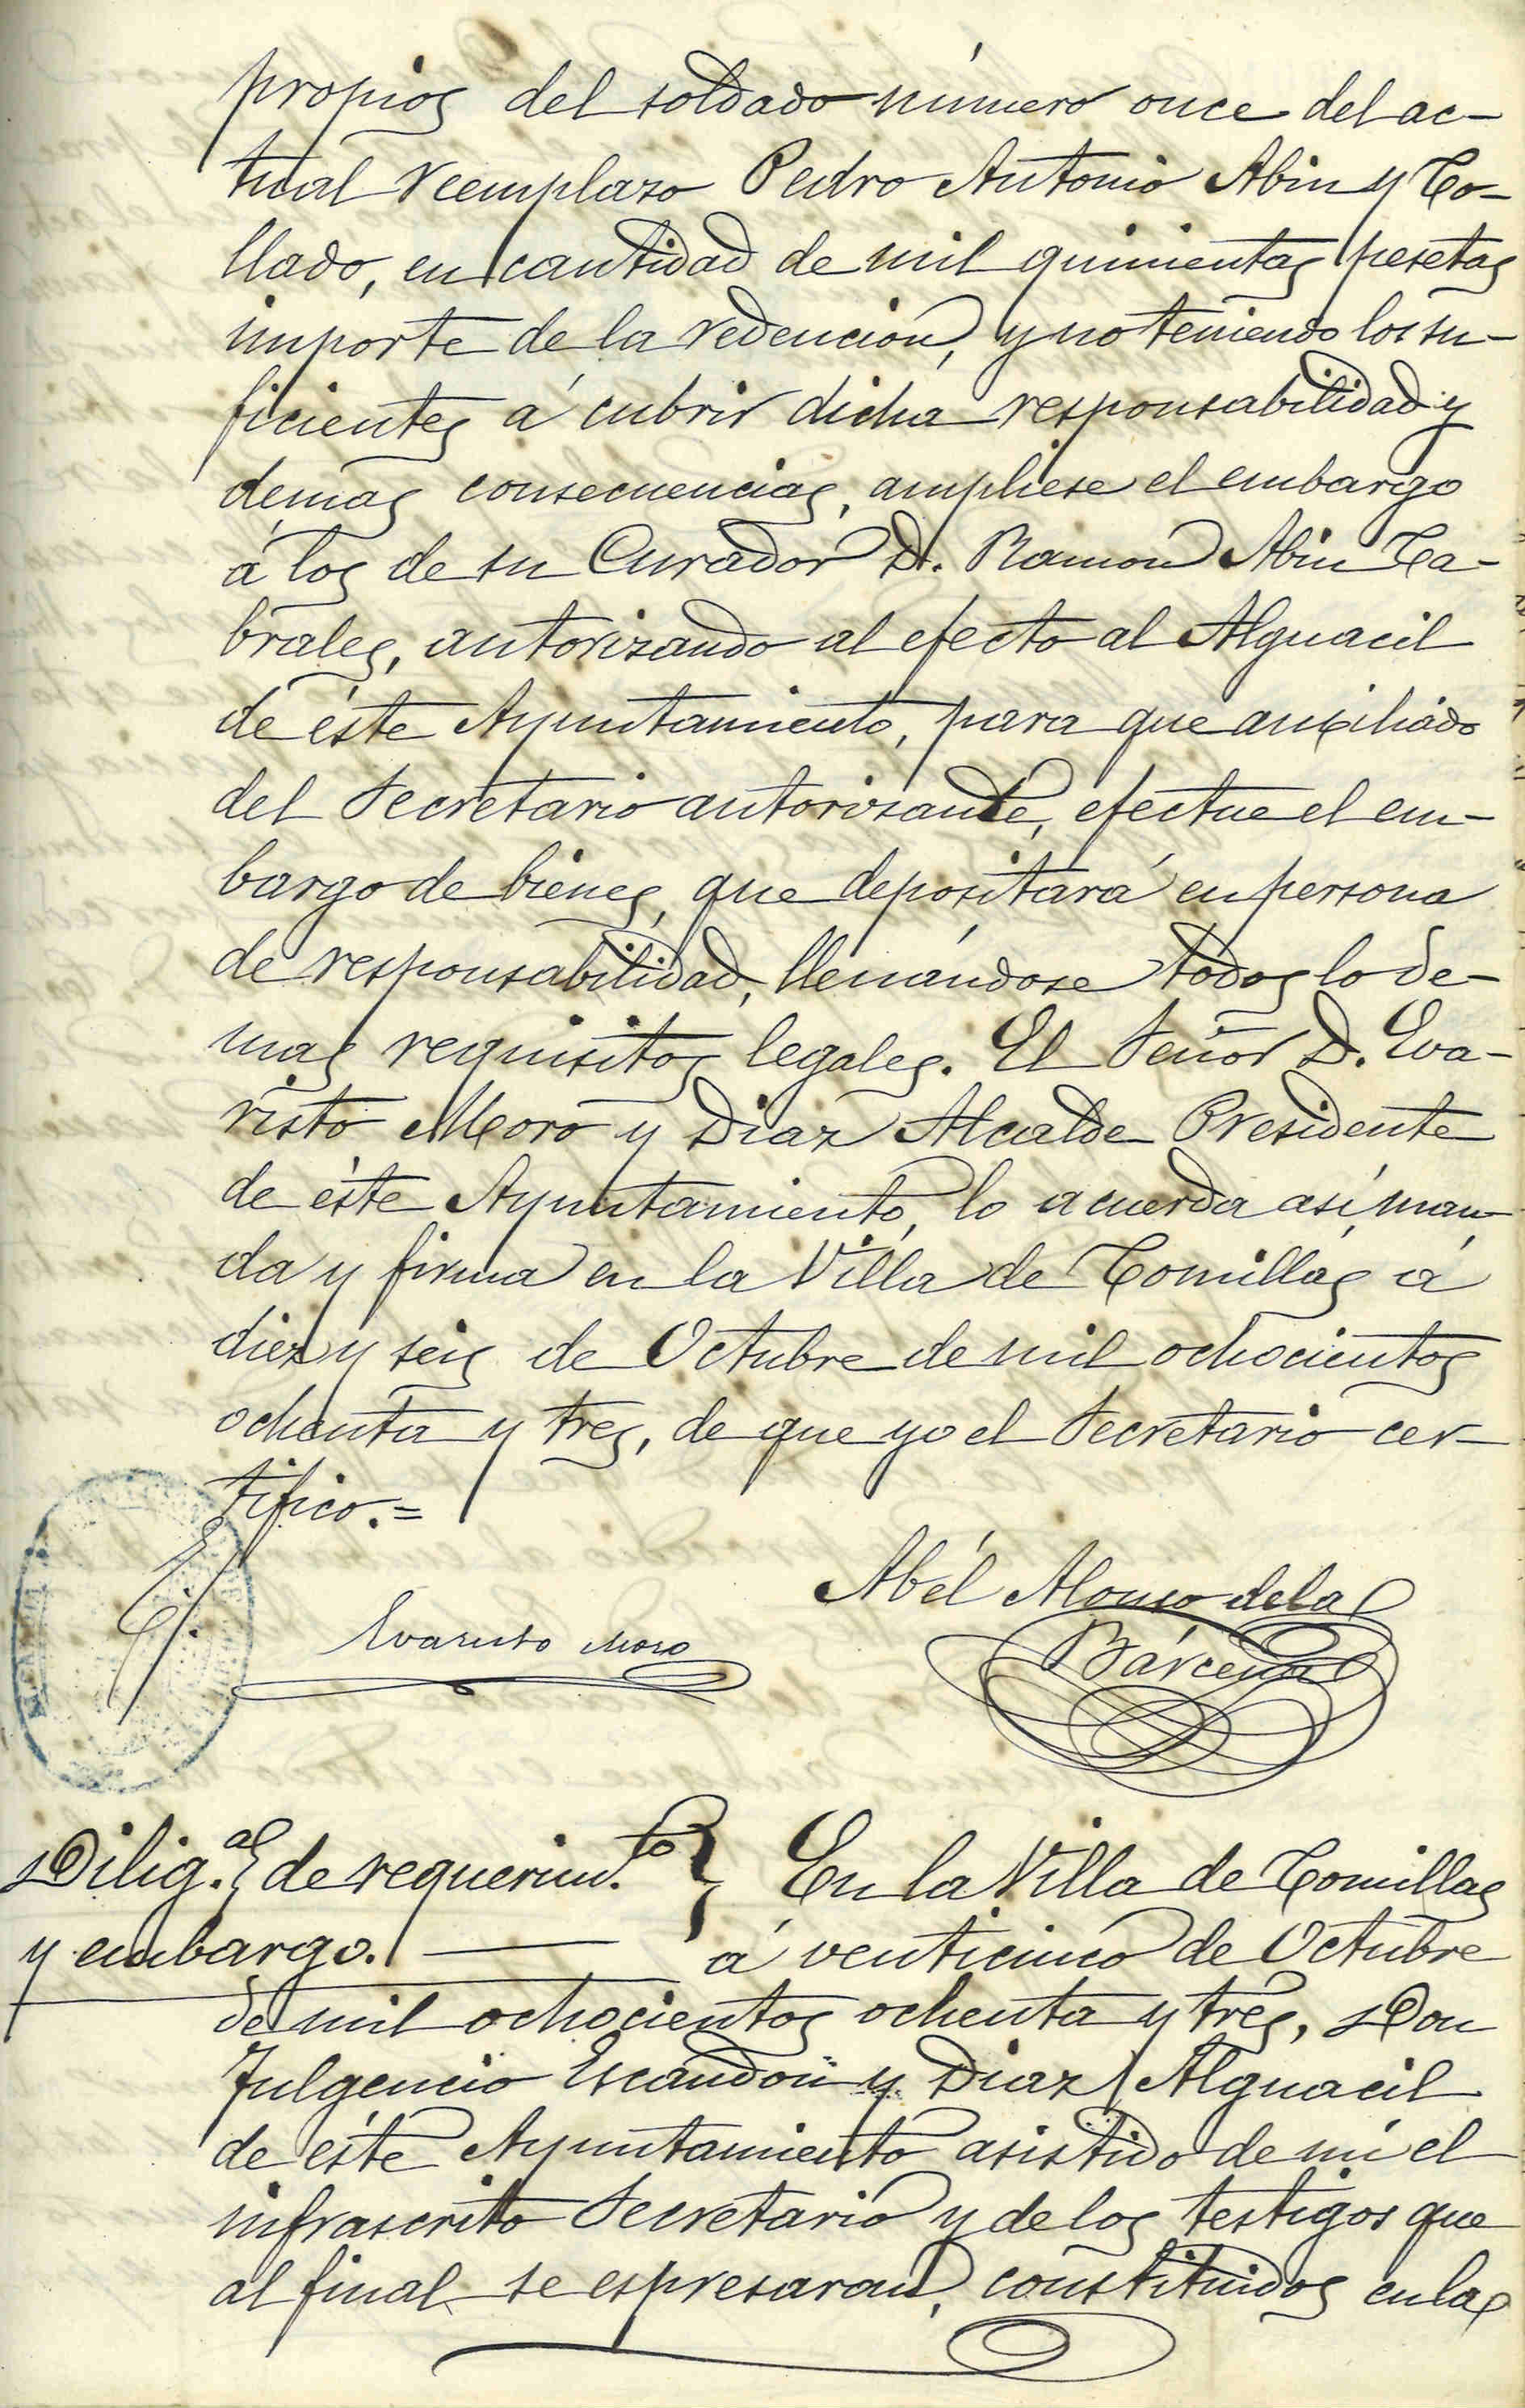 propios del soldado número once del ac-
tual reemplazo Pedro Antonio Abin y Co-
llado, en cantidad de mil quinientas pesetas
importe de la redencion, y no teniendo los su-
ficientes á cubrir dicha responsabilidad y
demas consecuencias, ampliese el embargo
á los de su Curador D. Ramon Abin Ca-
brales, autorizando al efecto al Alguacil
de éste Ayuntamiento, para que auxiliado
del Secretario autorizante, efectue el em-
bargo de bienes, que depositará en persona
de responsabilidad, llenándose todos lo de-
mas requisitos legales. El Señor D. Eva-
risto Moro y Diaz Alcalde Presidente
de éste Ayuntamiento, lo acuerda así, man-
da y firma en la Villa de Comillas á
diez y seis de Octubre de mil ochocientos
ochenta y tres, de que yo el Secretario cer-
tifico.=
Abél Alonso de la
Evaristo Moro
Bárcena
Dilig.as de requerim.to } En la Villa de Comillas
y embargo. — á venticinco de Octubre
de mil ochocientos ochenta y tres, Don
Fulgencio Escandon y Diaz Alguacil
de éste Ayuntamiento asistido de mí el
infrascrito Secretario y de los testigos que
al final se espresaran, constituidos en la